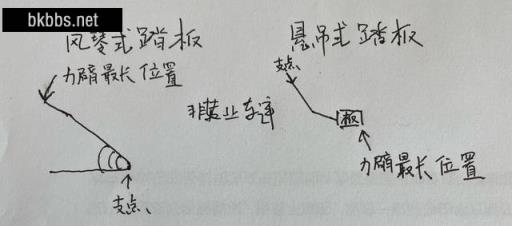 bkbbs.net
风琴式踏板
力臂最长位置
支点、
悬吊式踏板
支点、
板
力臂最长位置